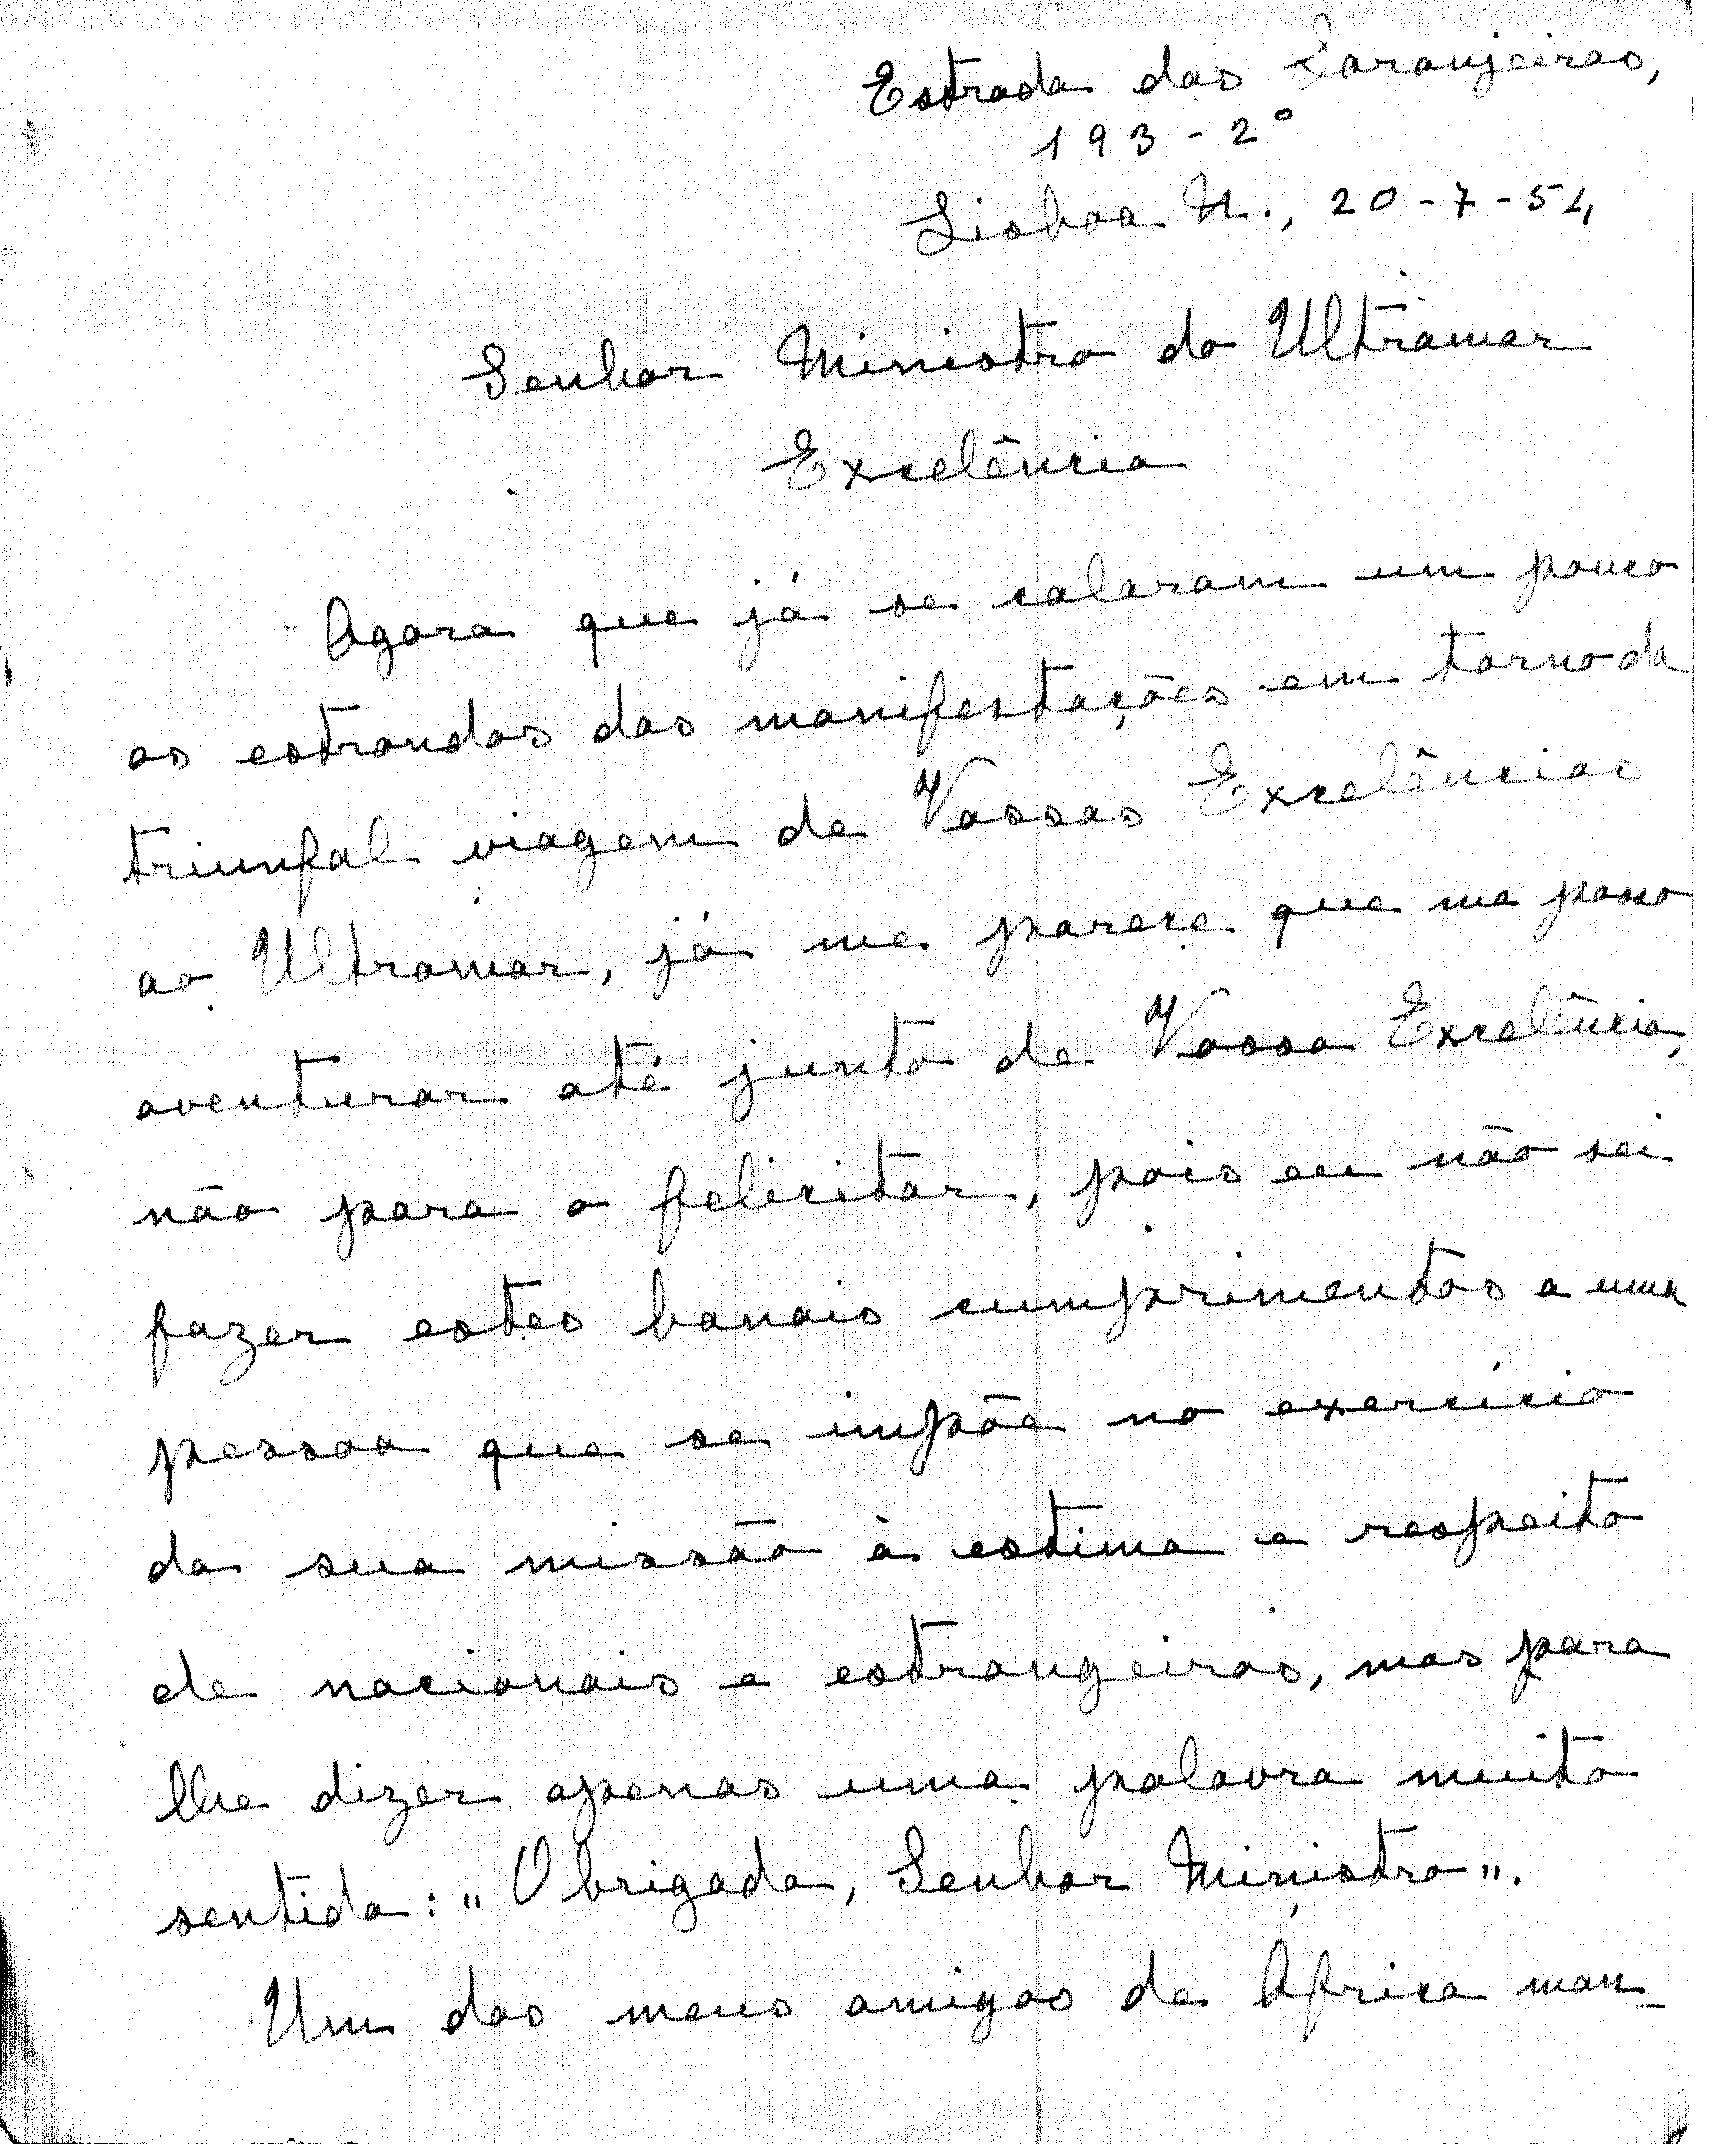 Estrada das Laranjeiras,
193-2º
Lisboa N., 20-7-54
Senhor Ministro do Ultramar
Excelência
Agora que já se calaram um pouco
os estrondos das manifestações em torno da
triunfal viagem de Vossas Excelências
ao Ultramar, já me parece que me posso
aventurar até junto de Vossa Excelência,
não para o felicitar, pois eu não sei
fazer estes banais cumprimentos a uma
pessoa que se impõe no exercício
da sua missão à estima e respeito
de nacionais e estrangeiros, mas para
lhe dizer apenas uma palavra muito
sentida: "Obrigada, Senhor Ministro".
Um dos meus amigos de África man-